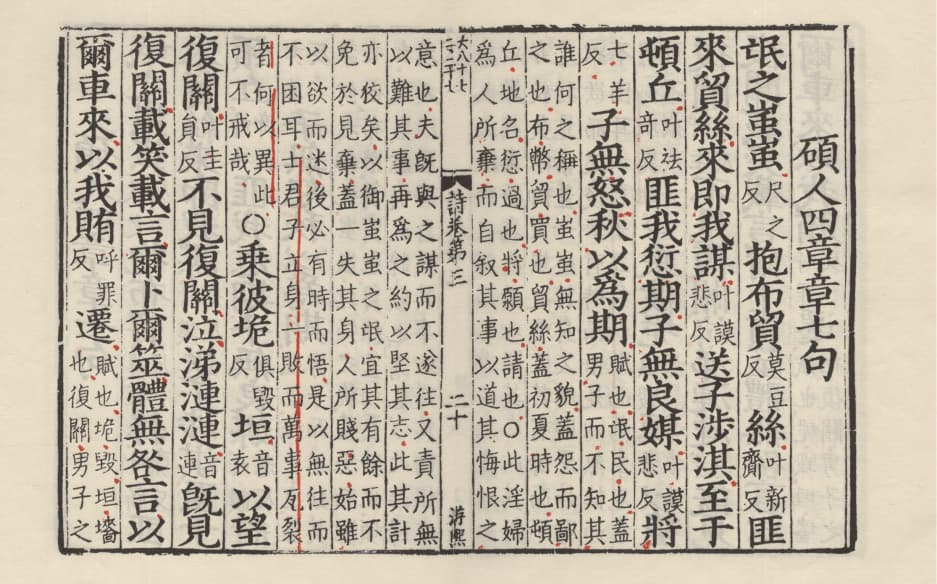 碩人四章章七句
氓之蚩蚩尺之反抱布貿莫豆反絲叶新齎反匪
來貿絲來即我謀叶謨悲反送子涉淇至于
頓丘叶祛奇反匪我愆期子無良媒叶謨悲反將
七羊反子無怒秋以為期賦也氓民也蓋男子而不知其
誰何之稱也蚩蚩無知之貌蓋怨而鄙
之也布幣貿買也貿絲蓋初夏時也頓
丘地名愆過也將願也請也○此淫婦
為人所棄而自叙其事以道其悔恨之
詩卷第三
二十
游熙
意也夫旣與之謀而不遂往又責所無
以難其事再為之約以堅其志此其計
亦狡矣以御蚩蚩之氓宜其有餘而不
免於見棄蓋一失其身人所賤惡始雖
以欲而迷後必有時而悟是以無往而
不困耳士君子立身一敗而萬事瓦裂
者何以異此可不戒哉○乘彼垝俱毀反垣音袁以望
復關叶圭員反不見復關泣涕漣漣音連旣見
復關載笑載言爾卜爾筮體無咎言以
爾車來以我賄呼罪反遷賦也垝毀垣墻也復關男子之